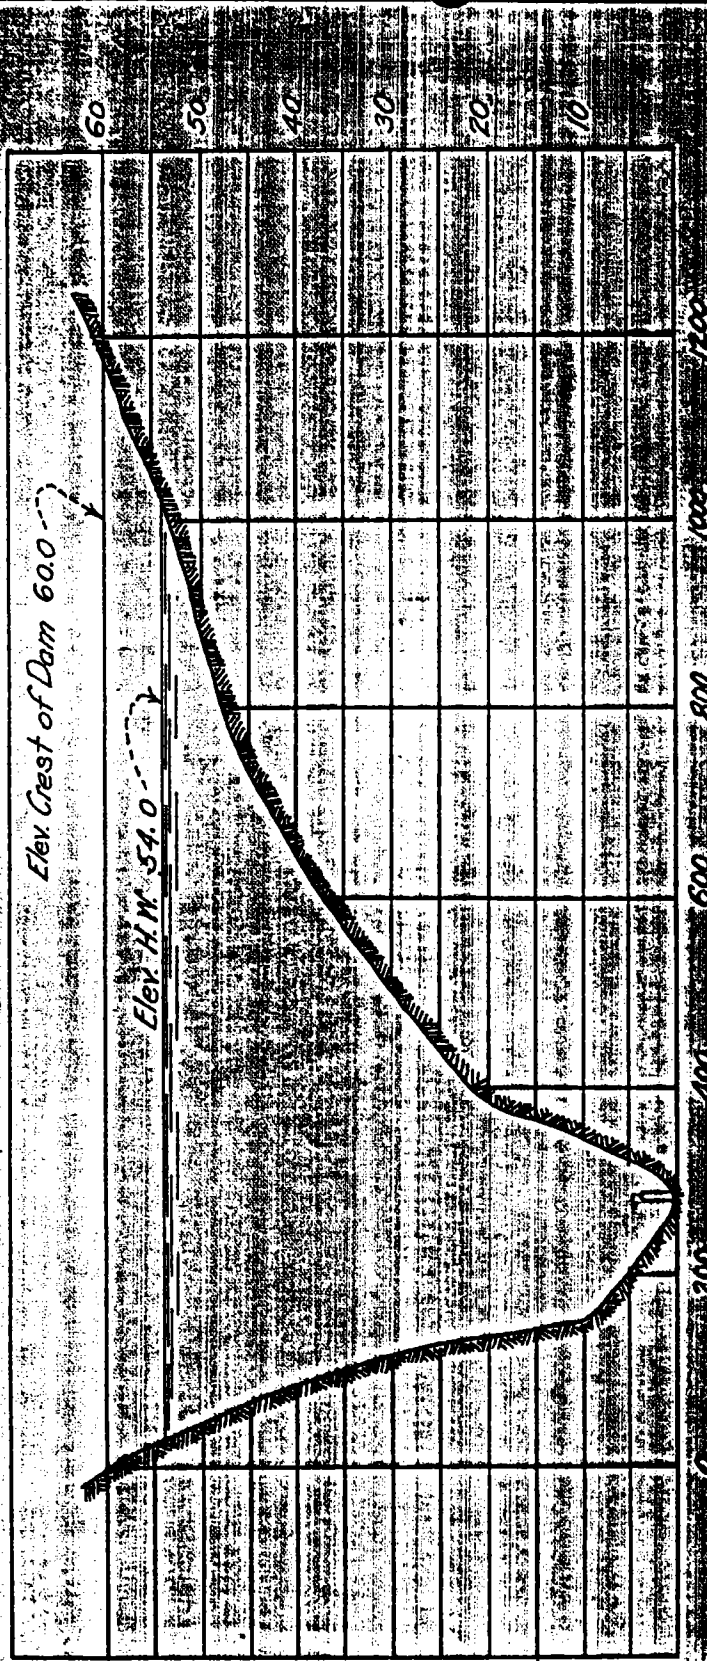 Elev. Crest of Dam 60.0
Elev. H.W. 54.0
60
50
40
30
20
10
0
200
400
600
800
1000
1200